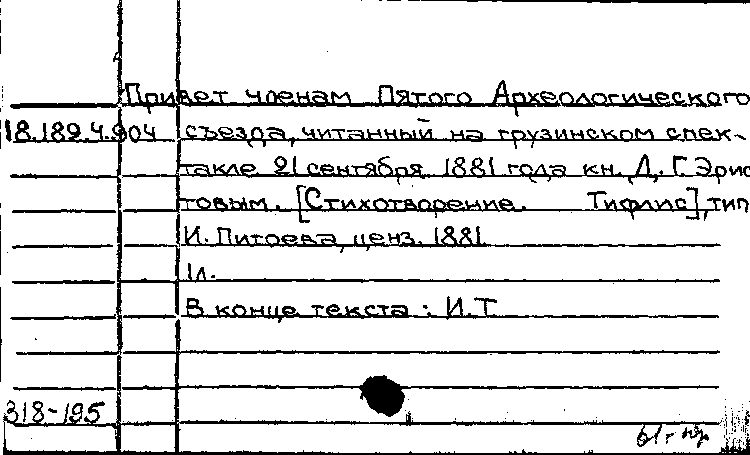 Привет членам Пятого Археологического
18.189.4.904 съезда, читанный на грузинском спек-
такле 21 сентября 1881 года кн. Д. Г. Эрис
товым. [Стихотворение. Тифлис], тип
И. Питоева, ценз. 1881.
1л.
В конце текста: И.Т
318-195
61г